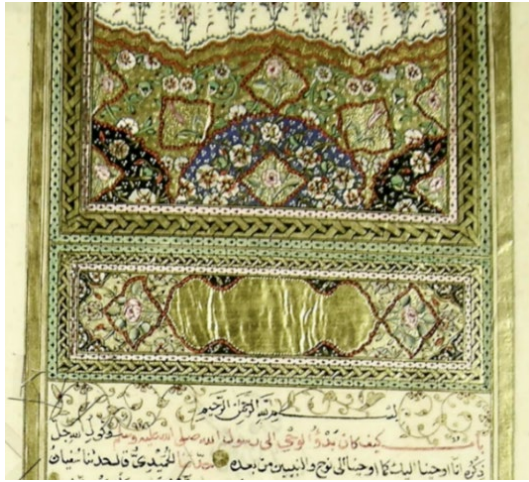 بسم الله الرحمن الرحيم
باب كيف كان بدؤ الوحي الى رسول الله صلى الله عليه وسلم وقول الله عز وجل
ذكره انا اوحينا اليك كما اوحينا الى نوح والنبيين من بعده حدثنا الحميدي قال حدثنا سفيان